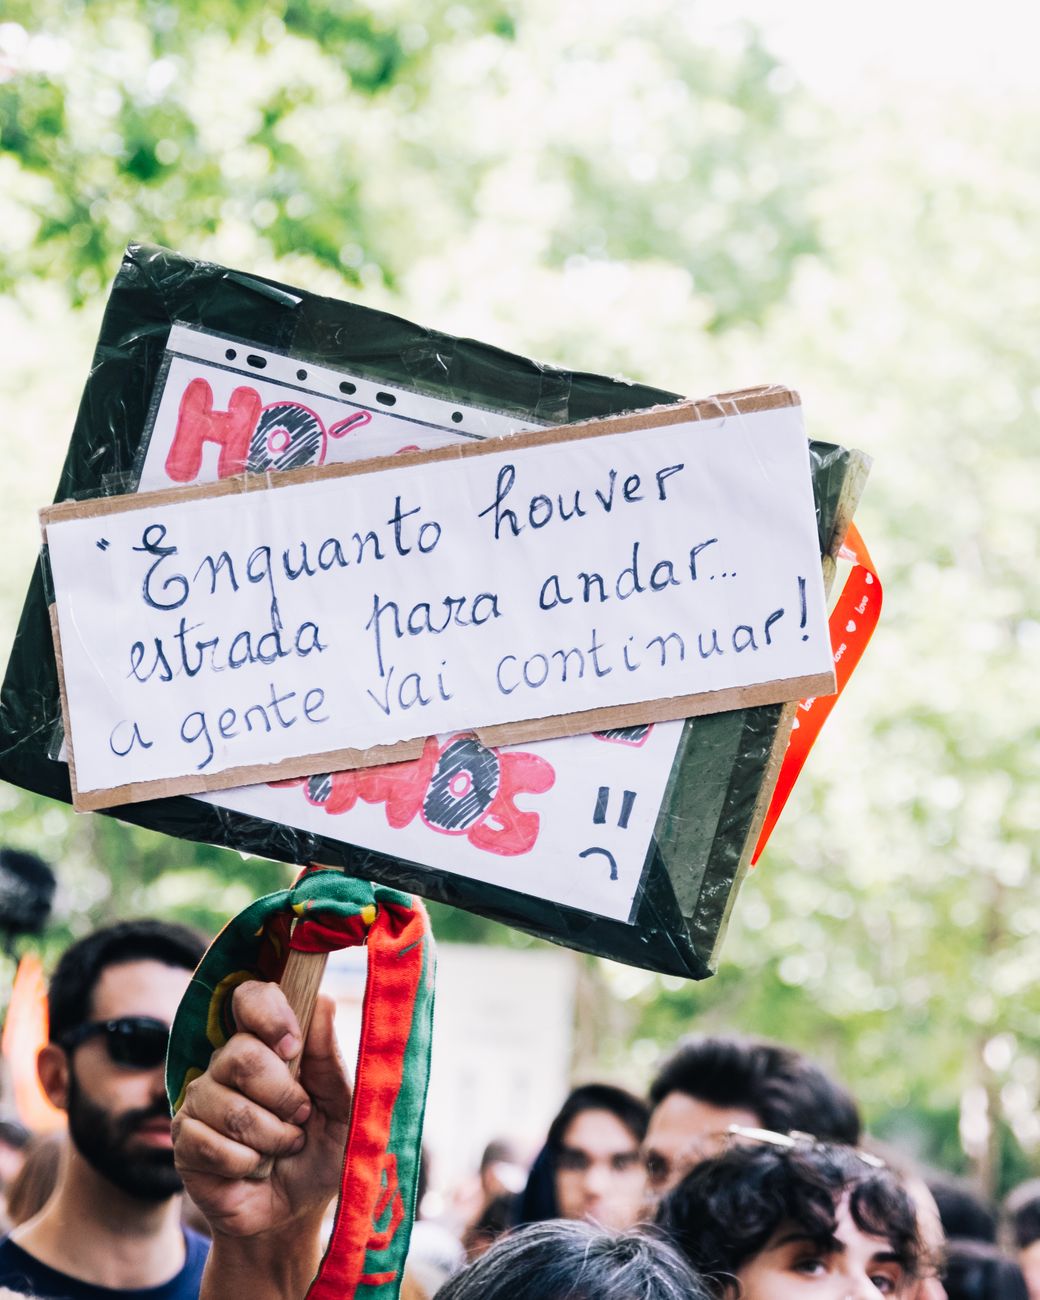 HO´
"Enquanto houver
estrada para andar...
a gente vai continuar!
MOS
=(
love
love